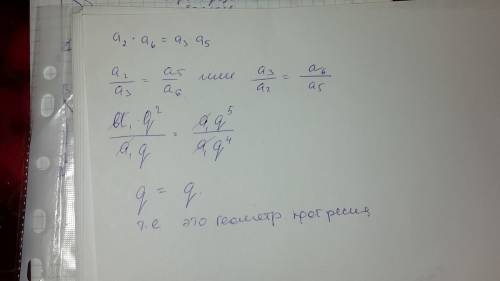 a₂ · a₆ = a₃ a₅
a₂/a₃ = a₅/a₆ или a₃/a₂ = a₆/a₅
a₁·q²/a₁q = a₁q⁵/a₁q⁴
q = q.
т.е это геометр. прогрессия